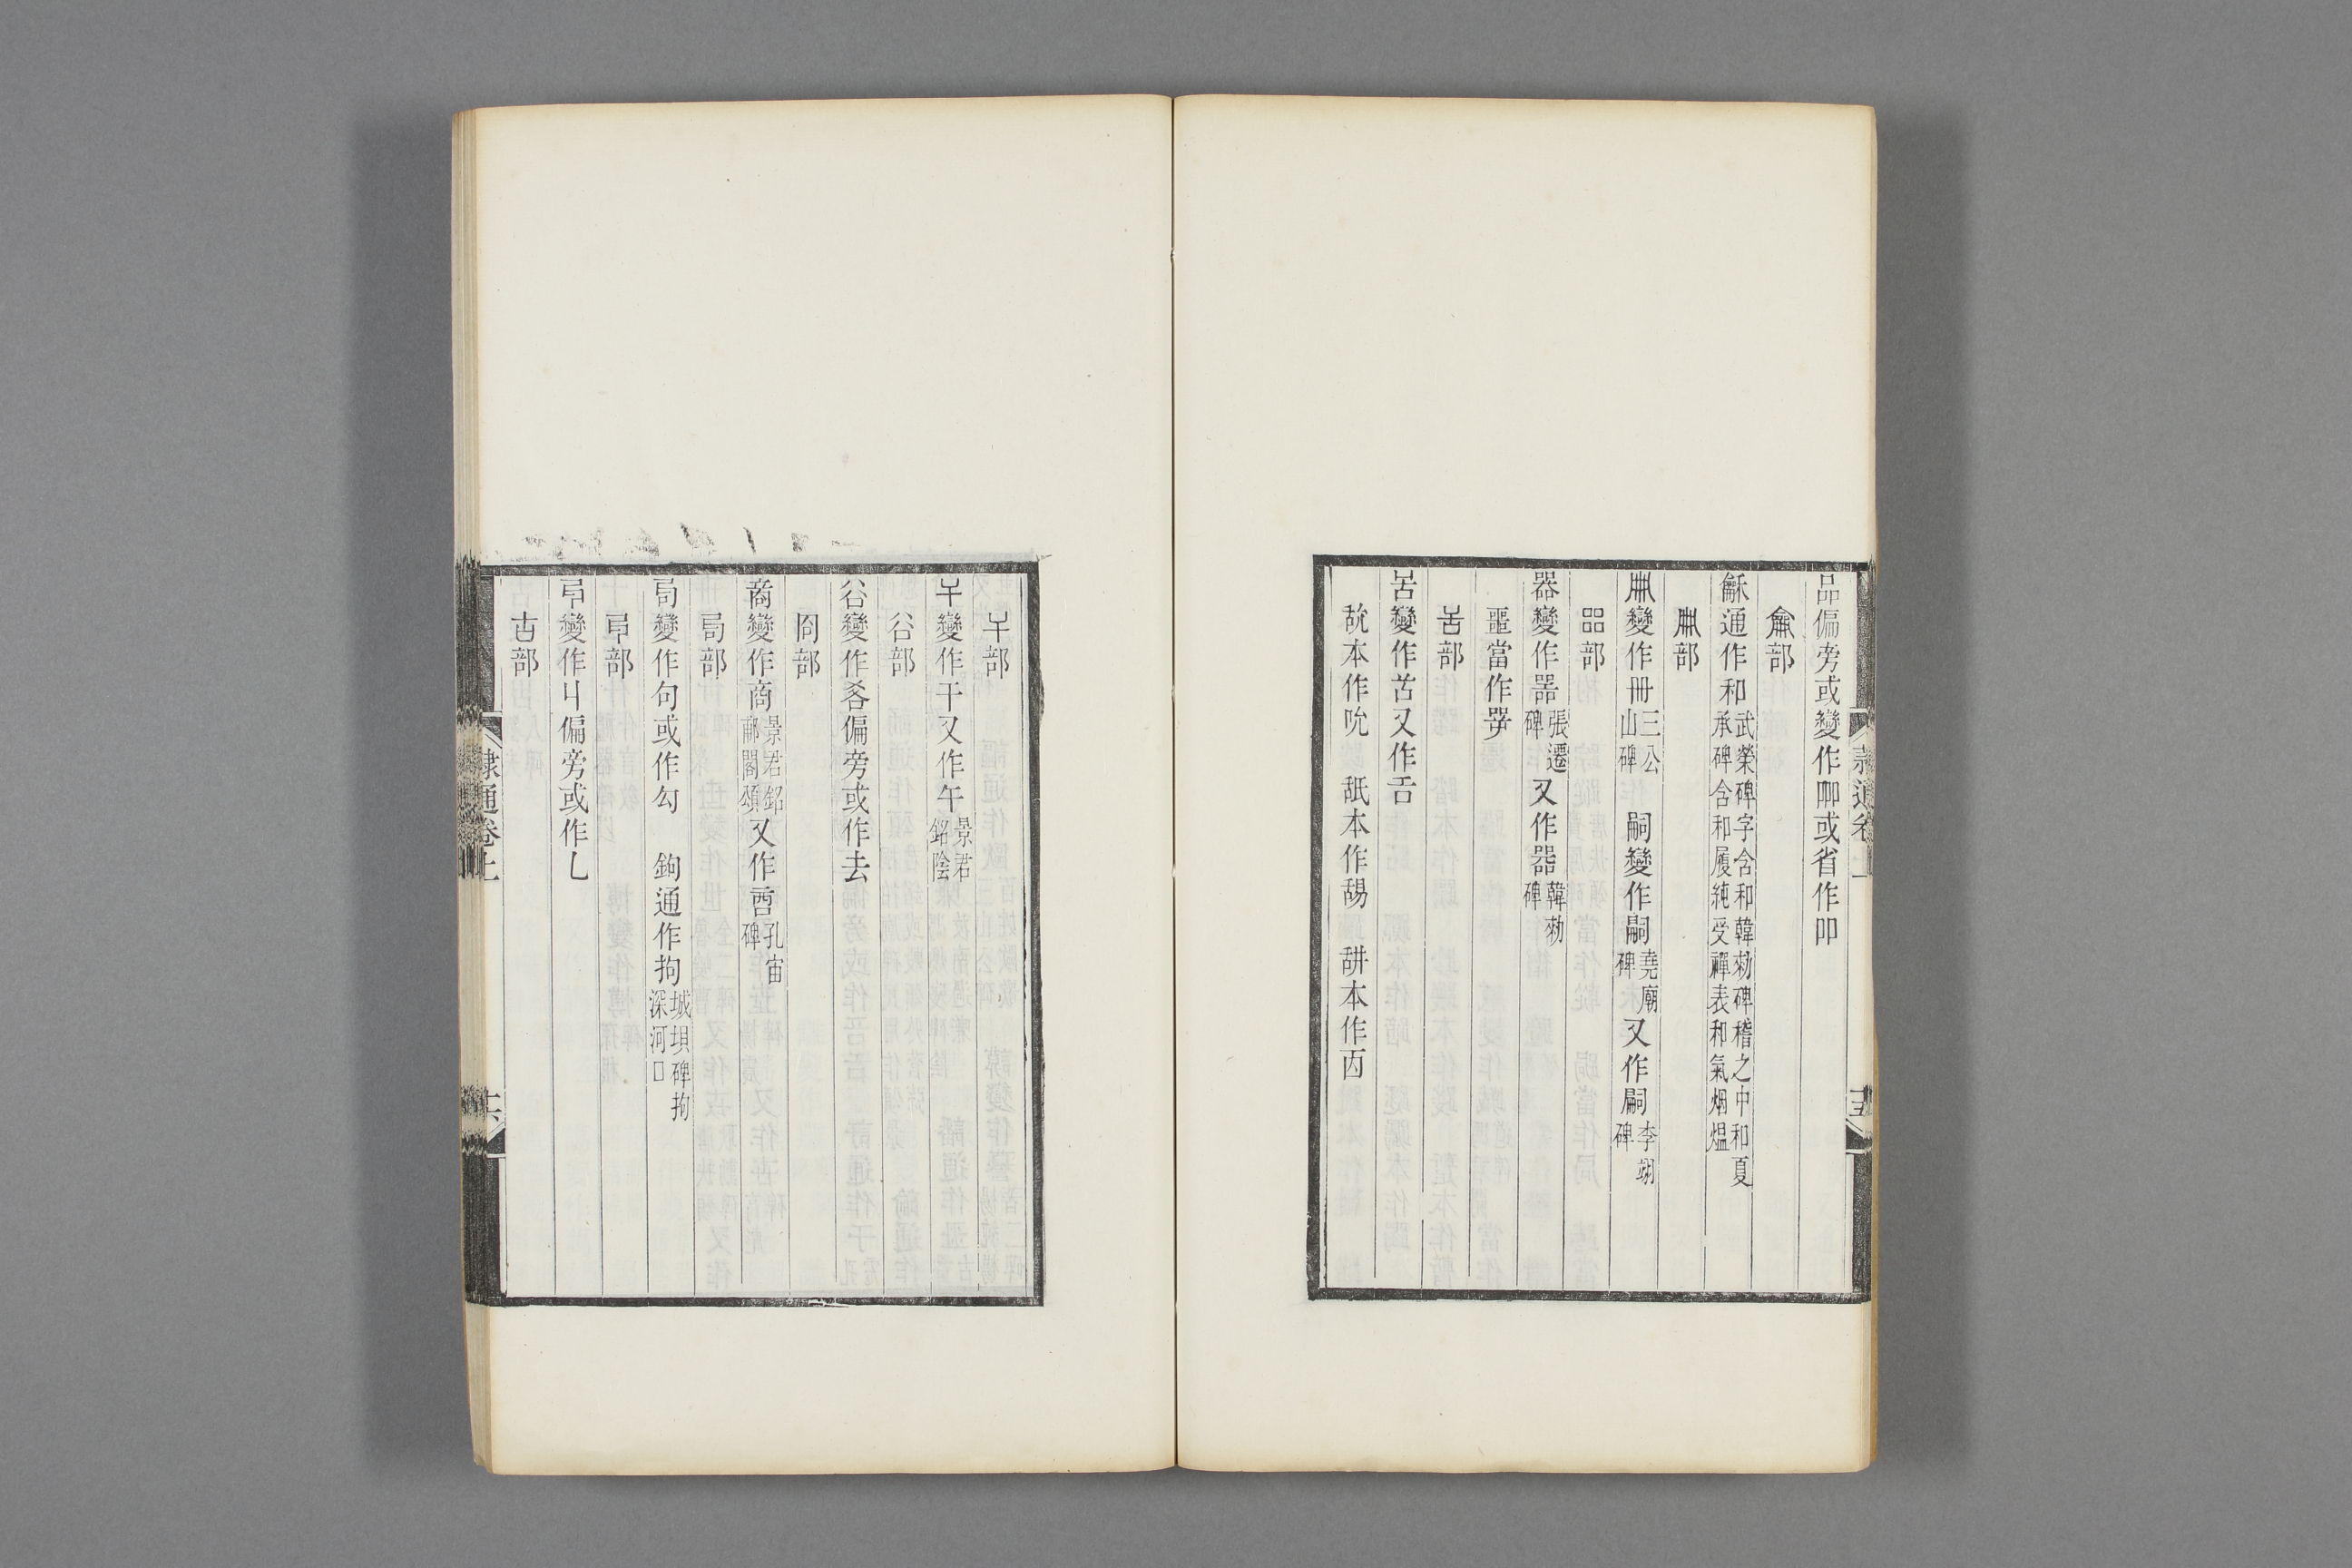 品偏旁或變作吅或省作叩
龠部
龢通作和武榮碑字含和韓勑碑稽之中和夏承碑含和履純受禪表和氣烟熅
𠕋部
𠕋變作冊三公山碑 嗣變作嗣堯廟碑又作嗣李翊碑
㗊部
器變作噐張遷碑又作器韓勑碑
噩當作咢
舌部
舌變作舌又作舌
䑙本作吮 舐本作舓 䑙本作㐁
干部
干變作干又作午景君銘陰
谷部
谷變作谷偏旁或作去
㕯部
商變作商景君銘郙閣頌又作啇孔宙碑
句部
句變作句或作勾 鉤通作拘城垻碑拘深河□
丩部
丩變作丩偏旁或作乚
古部
隸通卷上
十六